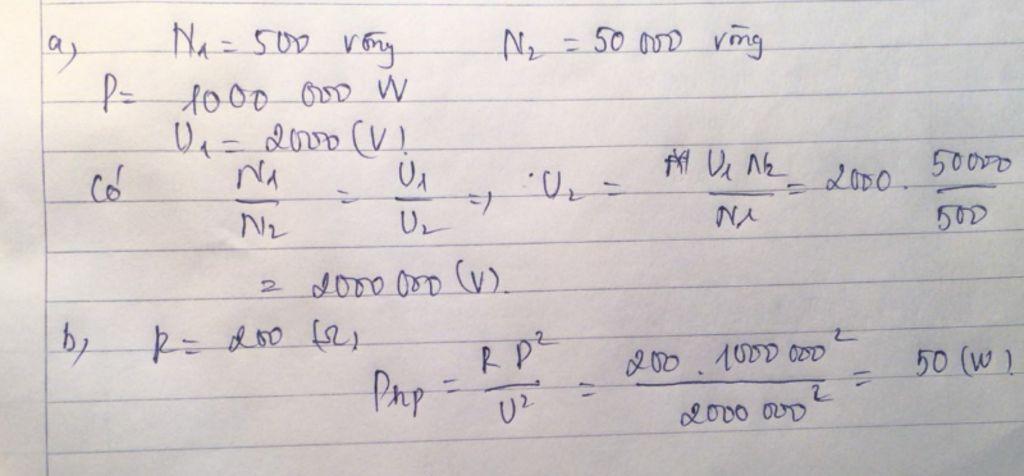 a, N1 = 500 vòng N2 = 50 000 vòng
P = 1000 000 W
U1 = 2000 (V)
Có N1/N2 = U1/U2 => U2 = U1 N2/N1 = 2000 . 50000/500
= 2000 000 (V).
b, R = 200 (Ω)
Php = R P²/U² = 200 . 1000 000²/2000 000² = 50 (W)